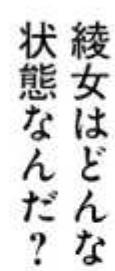 綾女はどんな
状態なんだ？